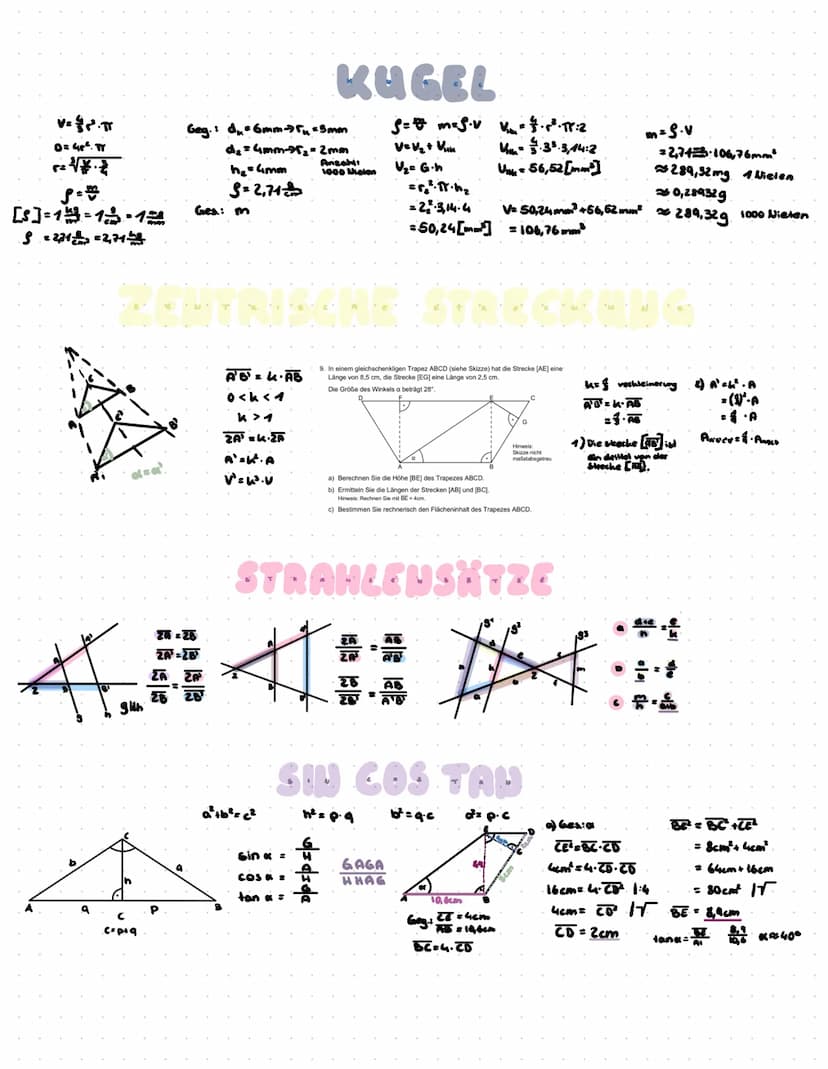 KUGEL
V = 4/3 r³ · π
O = 4r² · π
ρ = m/V
Geg.: dₖ = 6mm → rₖ = 3mm
d_z = 4mm → r_z = 2mm
h_z = 4mm
Anzahl:
1000 Nieten
Ges.: m
ρ = m/V m = ρ · V
V_z = G · h
= r_z² · π · h_z
= 2² · 3,14 · 4
= 50,24 [mm³]
= 4/3 · r³ · π : 2
= 4/3 · 3³ · 3,14 : 2
= 56,52 [mm³]
= 106,76 mm³
m = ρ · V
≈ 289,32mg 1 Nieten
≈ 0,28932g
≈ 289,32g 1000 Nieten
ZENTRISCHE STRECKUNG
A'B' = k · AB
0 < k < 1
k > 1
ZA' = k · ZA
A' = k² · A
V' = k³ · V
α = α'
9. In einem gleichschenkligen Trapez ABCD (siehe Skizze) hat die Strecke [AE] eine
Länge von 8,5 cm, die Strecke [EG] eine Länge von 2,5 cm.
Die Größe des Winkels α beträgt 28°.
D F E C
G
α
A B
Hinweis:
Skizze nicht
maßstabsgetreu
a) Berechnen Sie die Höhe [BE] des Trapezes ABCD.
b) Ermitteln Sie die Längen der Strecken [AB] und [BC].
Hinweis: Rechnen Sie mit BE = 4cm.
c) Bestimmen Sie rechnerisch den Flächeninhalt des Trapezes ABCD.
Verkleinerung
A'B' = k · AB
1) Die Strecke [A'B'] ist
ein drittel von der
Strecke [AB].
2) A' = k² · A
STRAHLENSÄTZE
g||h
ZA/ZB = ZA'/ZB'
ZA/ZA' = AB/A'B'
ZB/ZB' = AB/A'B'
g¹ g² g³
a (d+e)/n = e/k
b a/b = d/e
c m/k = c/(a+b)
SIN COS TAN
a² + b² = c²
h² = p · q
b² = q · c
a² = p · c
C
b a
h
A q p B
c
c = p+q
sin α = G/H
cos α = A/H
tan α = G/A
GAGA
HHAG
10,6cm
Geg.: CE = 4cm
AB = 10,6cm
BC = 4 · CD
a) Ges: α
CE² = BC · CD
4cm² = 4 · CD · CD
16cm = 4 · CD² |:4
4cm = CD² |√
CD = 2cm
BE² = BC² + CE²
= 8cm² + 4cm²
= 64cm + 16cm
= 80cm² |√
BE = 8,9cm
8,9/10,6 α ≈ 40°